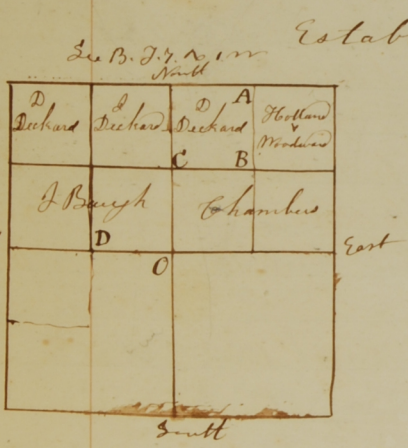 Estab
Sec B. T. 7. N 1 W
North
D
Deckard
J
Deckard
D
Deckard
A
Holland
&
Woodward
C
B
J Baugh
Chambers
D
O
East
South